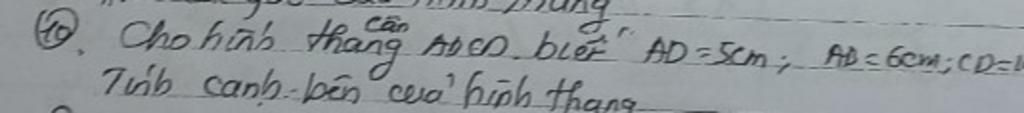 ⑩. Cho hình thang cân ABCD. biết AD = 5cm; AB = 6cm; CD =
Tính cạnh bên của hình thang